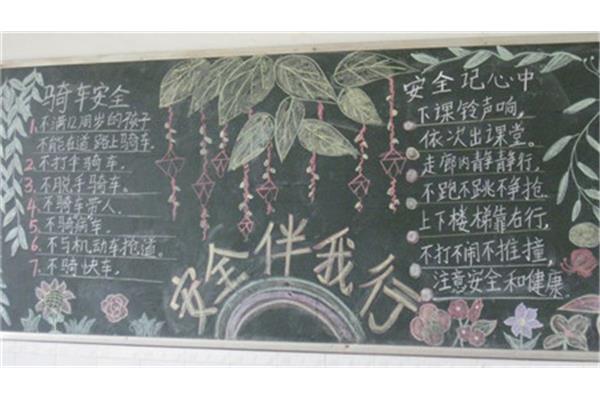 骑车安全
1.不满12周岁的孩子
不能在道路上骑车.
2.不打手骑车.
3.不脱手骑车.
4.不骑车带人.
5.不骑病车.
6.不与机动车抢道.
7.不骑快车.
安全伴我行
安全记心中
下课铃声响,
依次出课堂。
走廊内静静行,
不跑不跳不争抢.
上下楼梯靠右行,
不打不闹不推撞,
注意安全和健康.